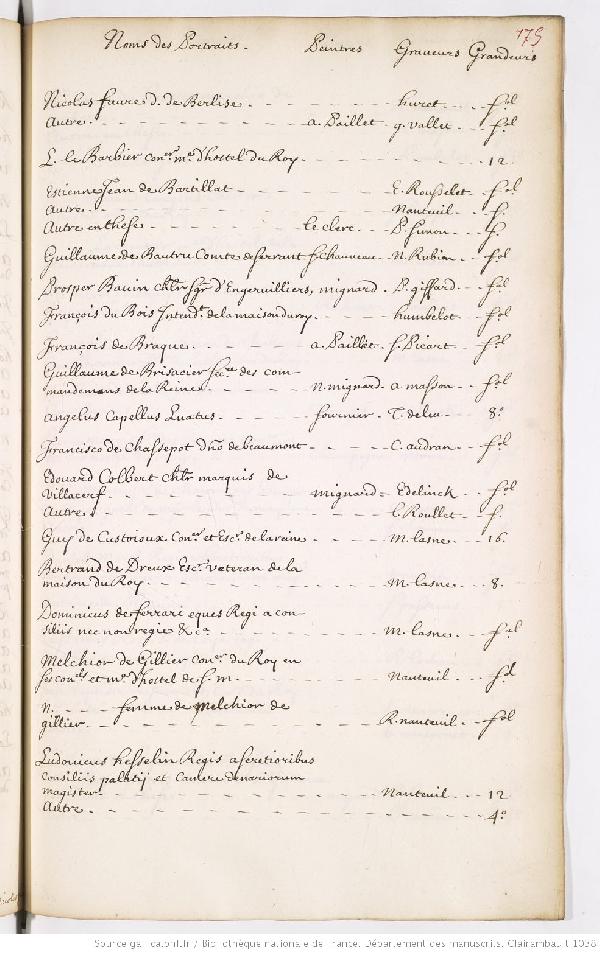 175
Noms des Portraits. Peintres Graveurs Grandeurs
Nicolas faure d. de Berlise - - - - huret - - - fol
Autre. - - - - a. Paillet. g. vallet - - fol
L. le Barbier coner. me. d'hostel du Roy - - - - 12
Estienne Jean de Bartillat - - - - E. Rousselet - fol
Autre. - - - - Nanteuil - - f.
Autre en these - - - - le clerc. - - P. simon - - f.
Guillaume de Bautru Comte de serrant f. chauveau - N. Rubin - - fol
Prosper Bauin chlr sgr d'Engervilliers, mignard. P. giffard. - - fol
François du Bois Intendt. de la maison du roy. - - - humbelot. - - fol
François de Braque. - - - - a. Paillet. f. Picart - - fol
Guillaume de Brisacier secre. des com-
mandemens de la Reine - - - - n. mignard. a. masson. - - fol
Angelus Capellus Luatus. - - - - fournier. T. de leu - - 8.o
Francisco de Chassepot dno de beaumont - - - - C. audran. - - fol
Edouard Colbert chlr marquis de
Villacerf. - - - - mignard = Edelinck. - - fol
Autre. - - - - l. Roullet - - f.
Guy de Custoioux Coner et Escr. de la raine. - - - M. lasne - - 16.
Bertrand de Dreux Escr. veteran de la
maison du Roy. - - - - M. lasne. - - 8.
Dominicus de ferrari eques Regi a con-
siliis nec non regie &ca - - - - M. lasne. - - fol
Melchior de Gillier coner. du Roy en
ses conels et me. d'hostel de s. m. - - - - Nanteuil - - fol
N. - - - femme de Melchior de
gillier. - - - - R. nanteuil. - - fol
Ludonicus hesselin Regis a secretioribus
consiliis palatij et Camere denariorum
magister. - - - - Nanteuil. - - 12
Autre. - - - - 4.o
Source gallica.bnf.fr / Bibliothèque nationale de France. Département des manuscrits. Clairambault 1038